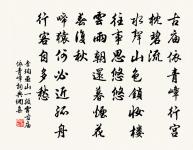 古庙依青嶂行宮
枕碧流
水聲山色鎖妝樓
往事思悠悠
雲雨朝還暮煙花
春復秋
啼猿何必近孤舟
行客自多愁
李珣巫山一段雲古庙
依青嶂